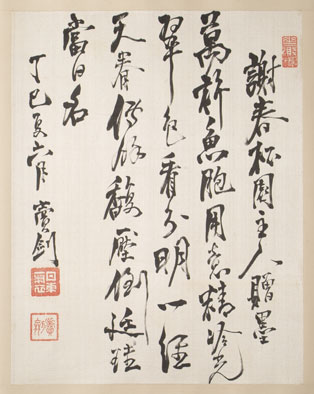 謝春松園主人贈墨
萬杵魚胞用意精冷光
翠色看分明一經
天眷餘馥壓倒廷珪
當日名
丁巳夏六月 劍